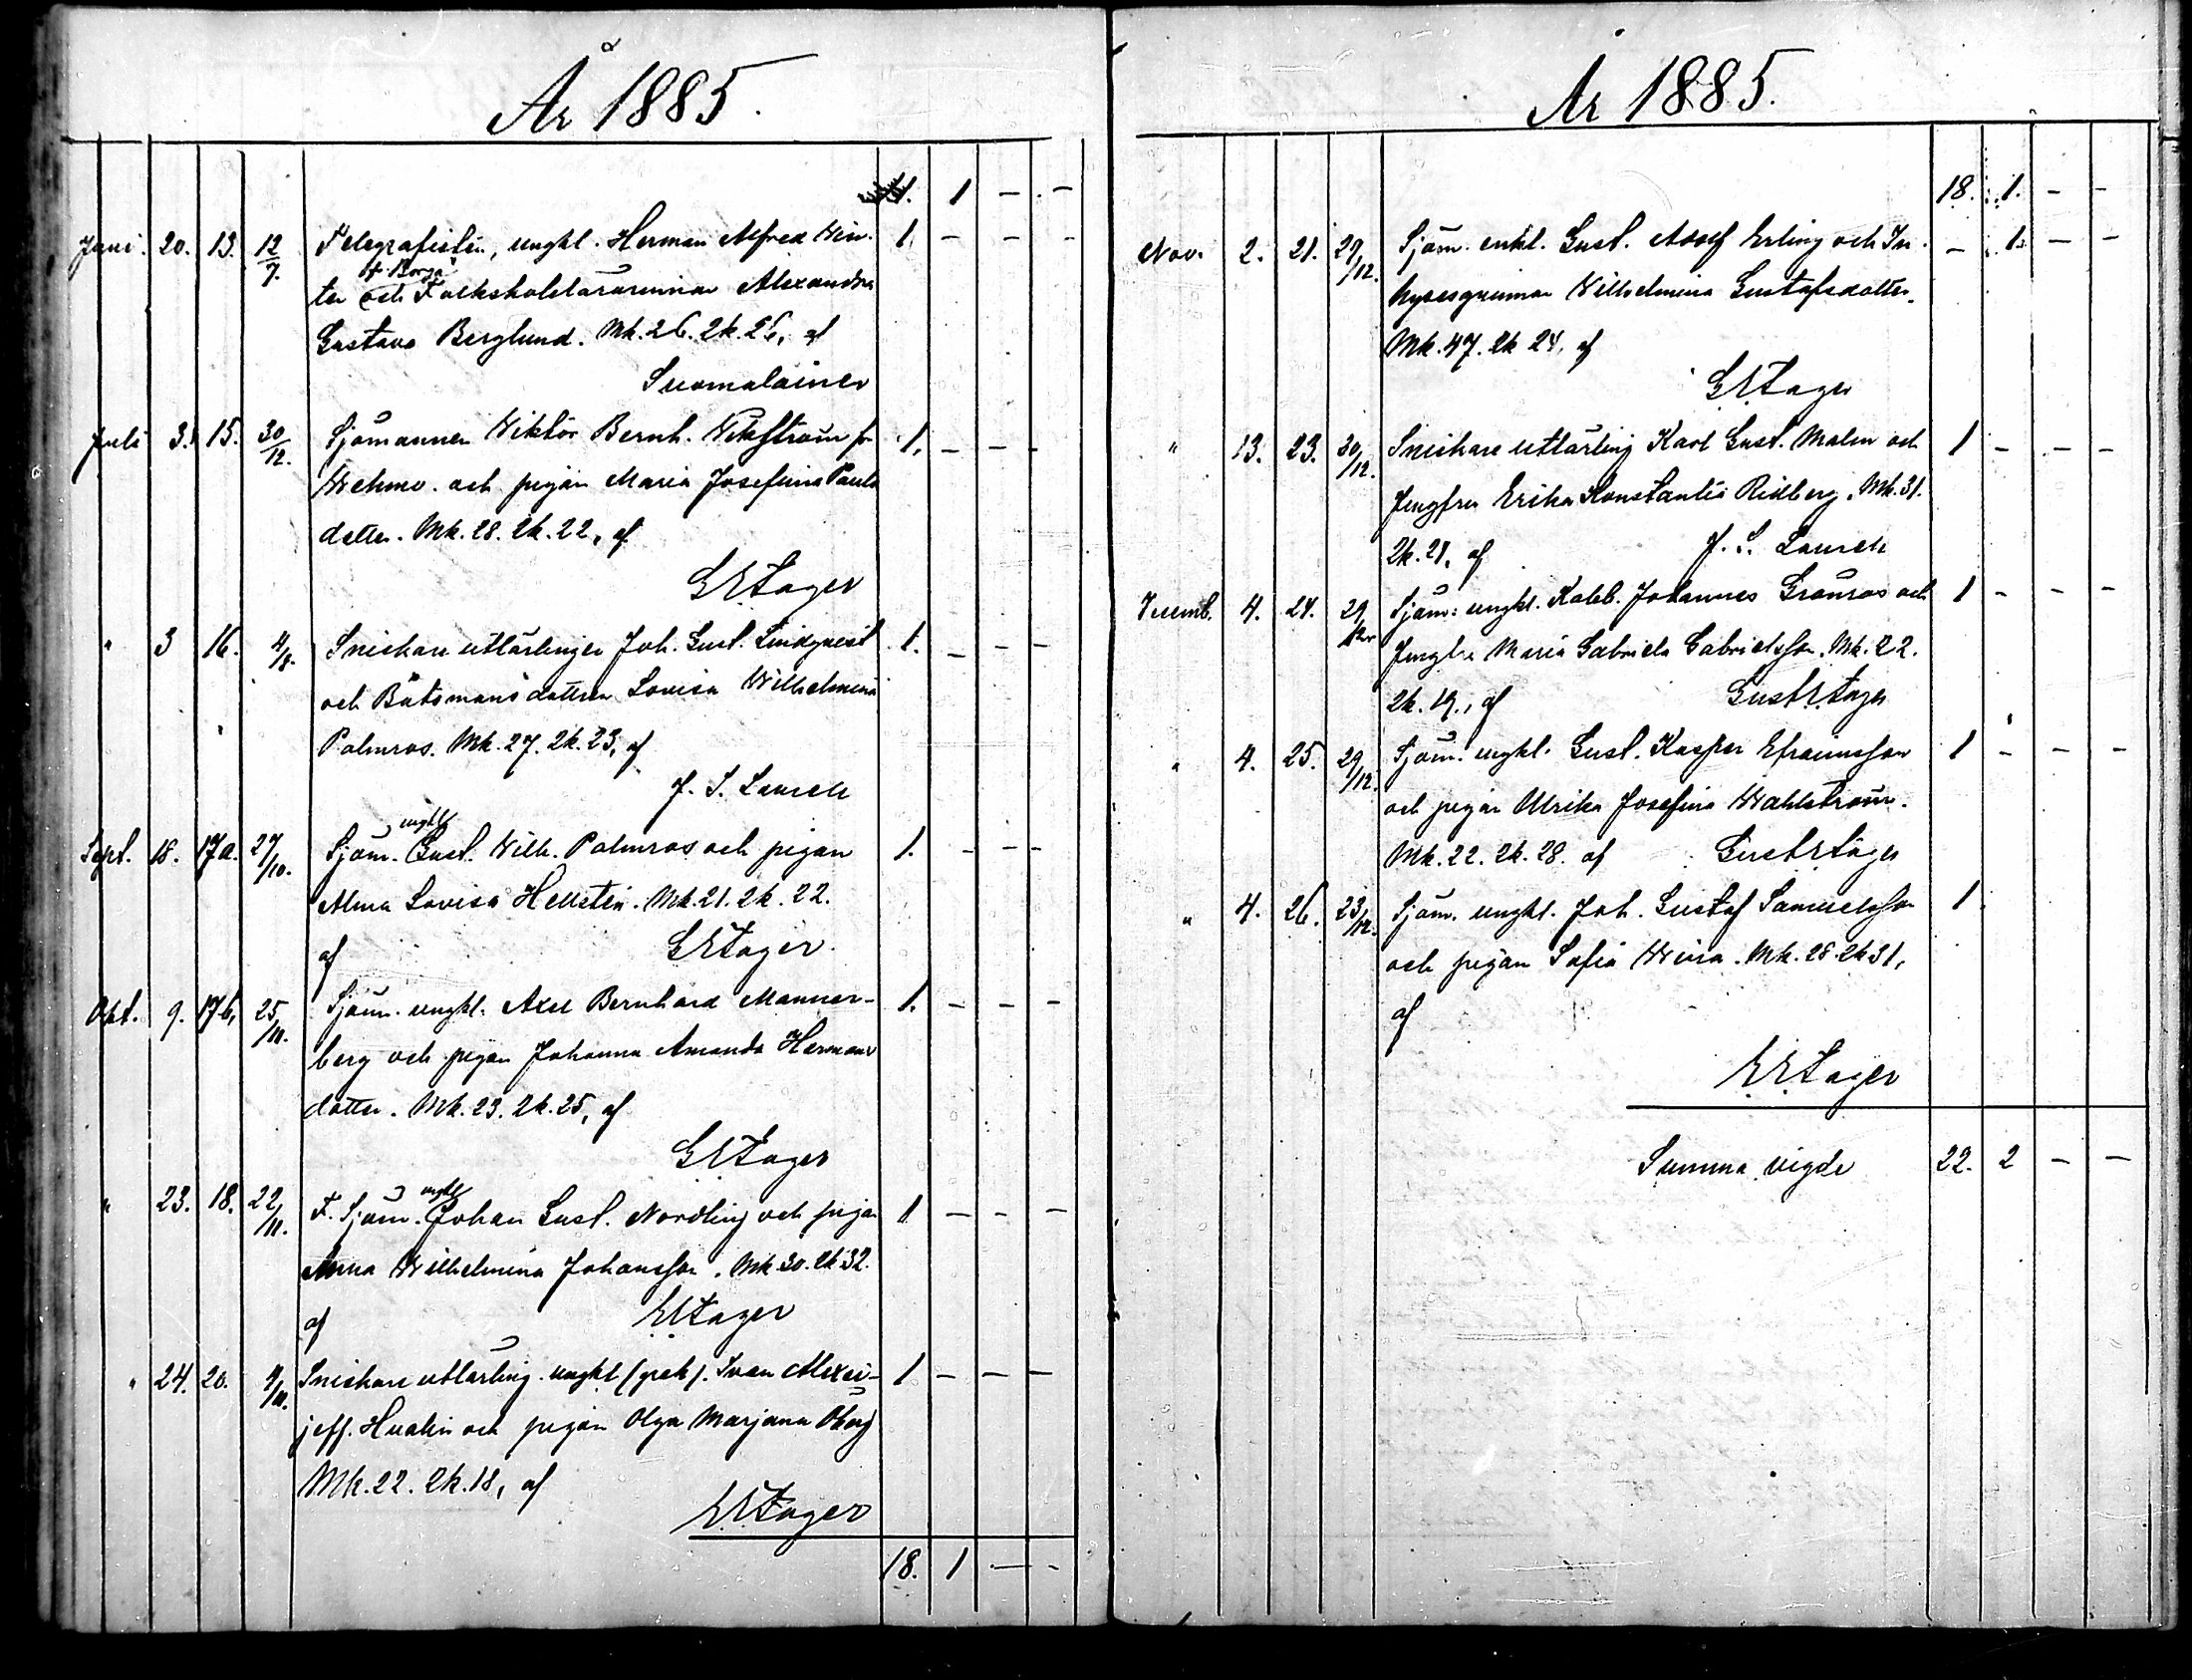 År 1885.
1. 1 — —
Juni. 20. 13. 12/7. Telegrafisten, ungkl. Herman Alfred Win- 1. — — —
fr. Borgå
ter och Folkskolelärarinnan Alexandra
Gustava Berglund. Mk. 26. Qk. 26, af
Suomalainen
Juli 3. 15. 30/12. Sjömannen Viktor Bernh. Wikström fr 1. — — -
Wehmo och pigan Maria Josefina Pauls
dotter. Mk. 28. Qk. 22, af
GEStager
" 3 16. 4/8. Snickare utlärlingen Joh. Gust. Lindquist 1. — — —
och Båtsmansdottren Lovisa Wilhelmina
Palmros. Mk. 27. Qk. 23, af
J. S. Laurell
ungkl
Sept. 18. 17a. 27/10. Sjöm. Gust. Wilh. Palmros och pigan 1. - — —
Alma Lovisa Hellsten. Mk. 21. Qk. 22.
af GEStager.
Okt. 9. 17b, 25/10. Sjöm. ungkl. Axel Bernhard Manner- 1. — — —
berg och pigan Johanna Amanda Hermans
dotter. Mk. 23. Qk. 25, af
GEStager
ungkl
" 23. 18. 22/11. F. Sjöm. Johan Gust. Nordling och pigan 1 — — —
Anna Wilhelmina Johansson. Mk. 30. Qk 32.
af GEStager
" 24. 20. Snickare utlärling. ungkl (grek). Ivan Alexei- 1 — — —
jeff. och pigan Olga Marjana Öberg
Mk. 22. Qk. 18, af
GEStager
18. 1 — -
År 1885.
18. 1. — —
Nov. 2. 21. 29/12. Sjöm. enkl. Gust. Adolf Erling och In- — 1. — —
hysesqvinnan Wilhelmina Gustafsdotter.
Mk. 47. Qk 24, af
GEStager
" 13. 23. 30/12. Snickare utlärling Karl Gust. Malin och 1 — — —
Jungfrun Erika Konstantia Ridberg. Mk. 31.
Qk. 21, af J. S. Laurell
Decemb. 4. 24. 29/12 Sjöm: ungkl. Kaleb. Johannes Granros och 1 - - -
Jungfr. Maria Gabriela Gabrielsson. Mk. 22.
Qk. 19., af GustEStager
" 4. 25. 29/12. Sjöm. ungkl. Gust. Kasper Efraimsson 1 - — —
och pigan Ulrika Josefina Wahlström.
Mk. 22. Qk. 28. af GustEStager
" 4. 26. 23/12. Sjöm. ungkl. Joh. Gustaf Samuelsson 1.
och pigan Sofia Wiira. Mk. 28. Qk 31,
af
GEStager
Summa vigde 22. 2 — —